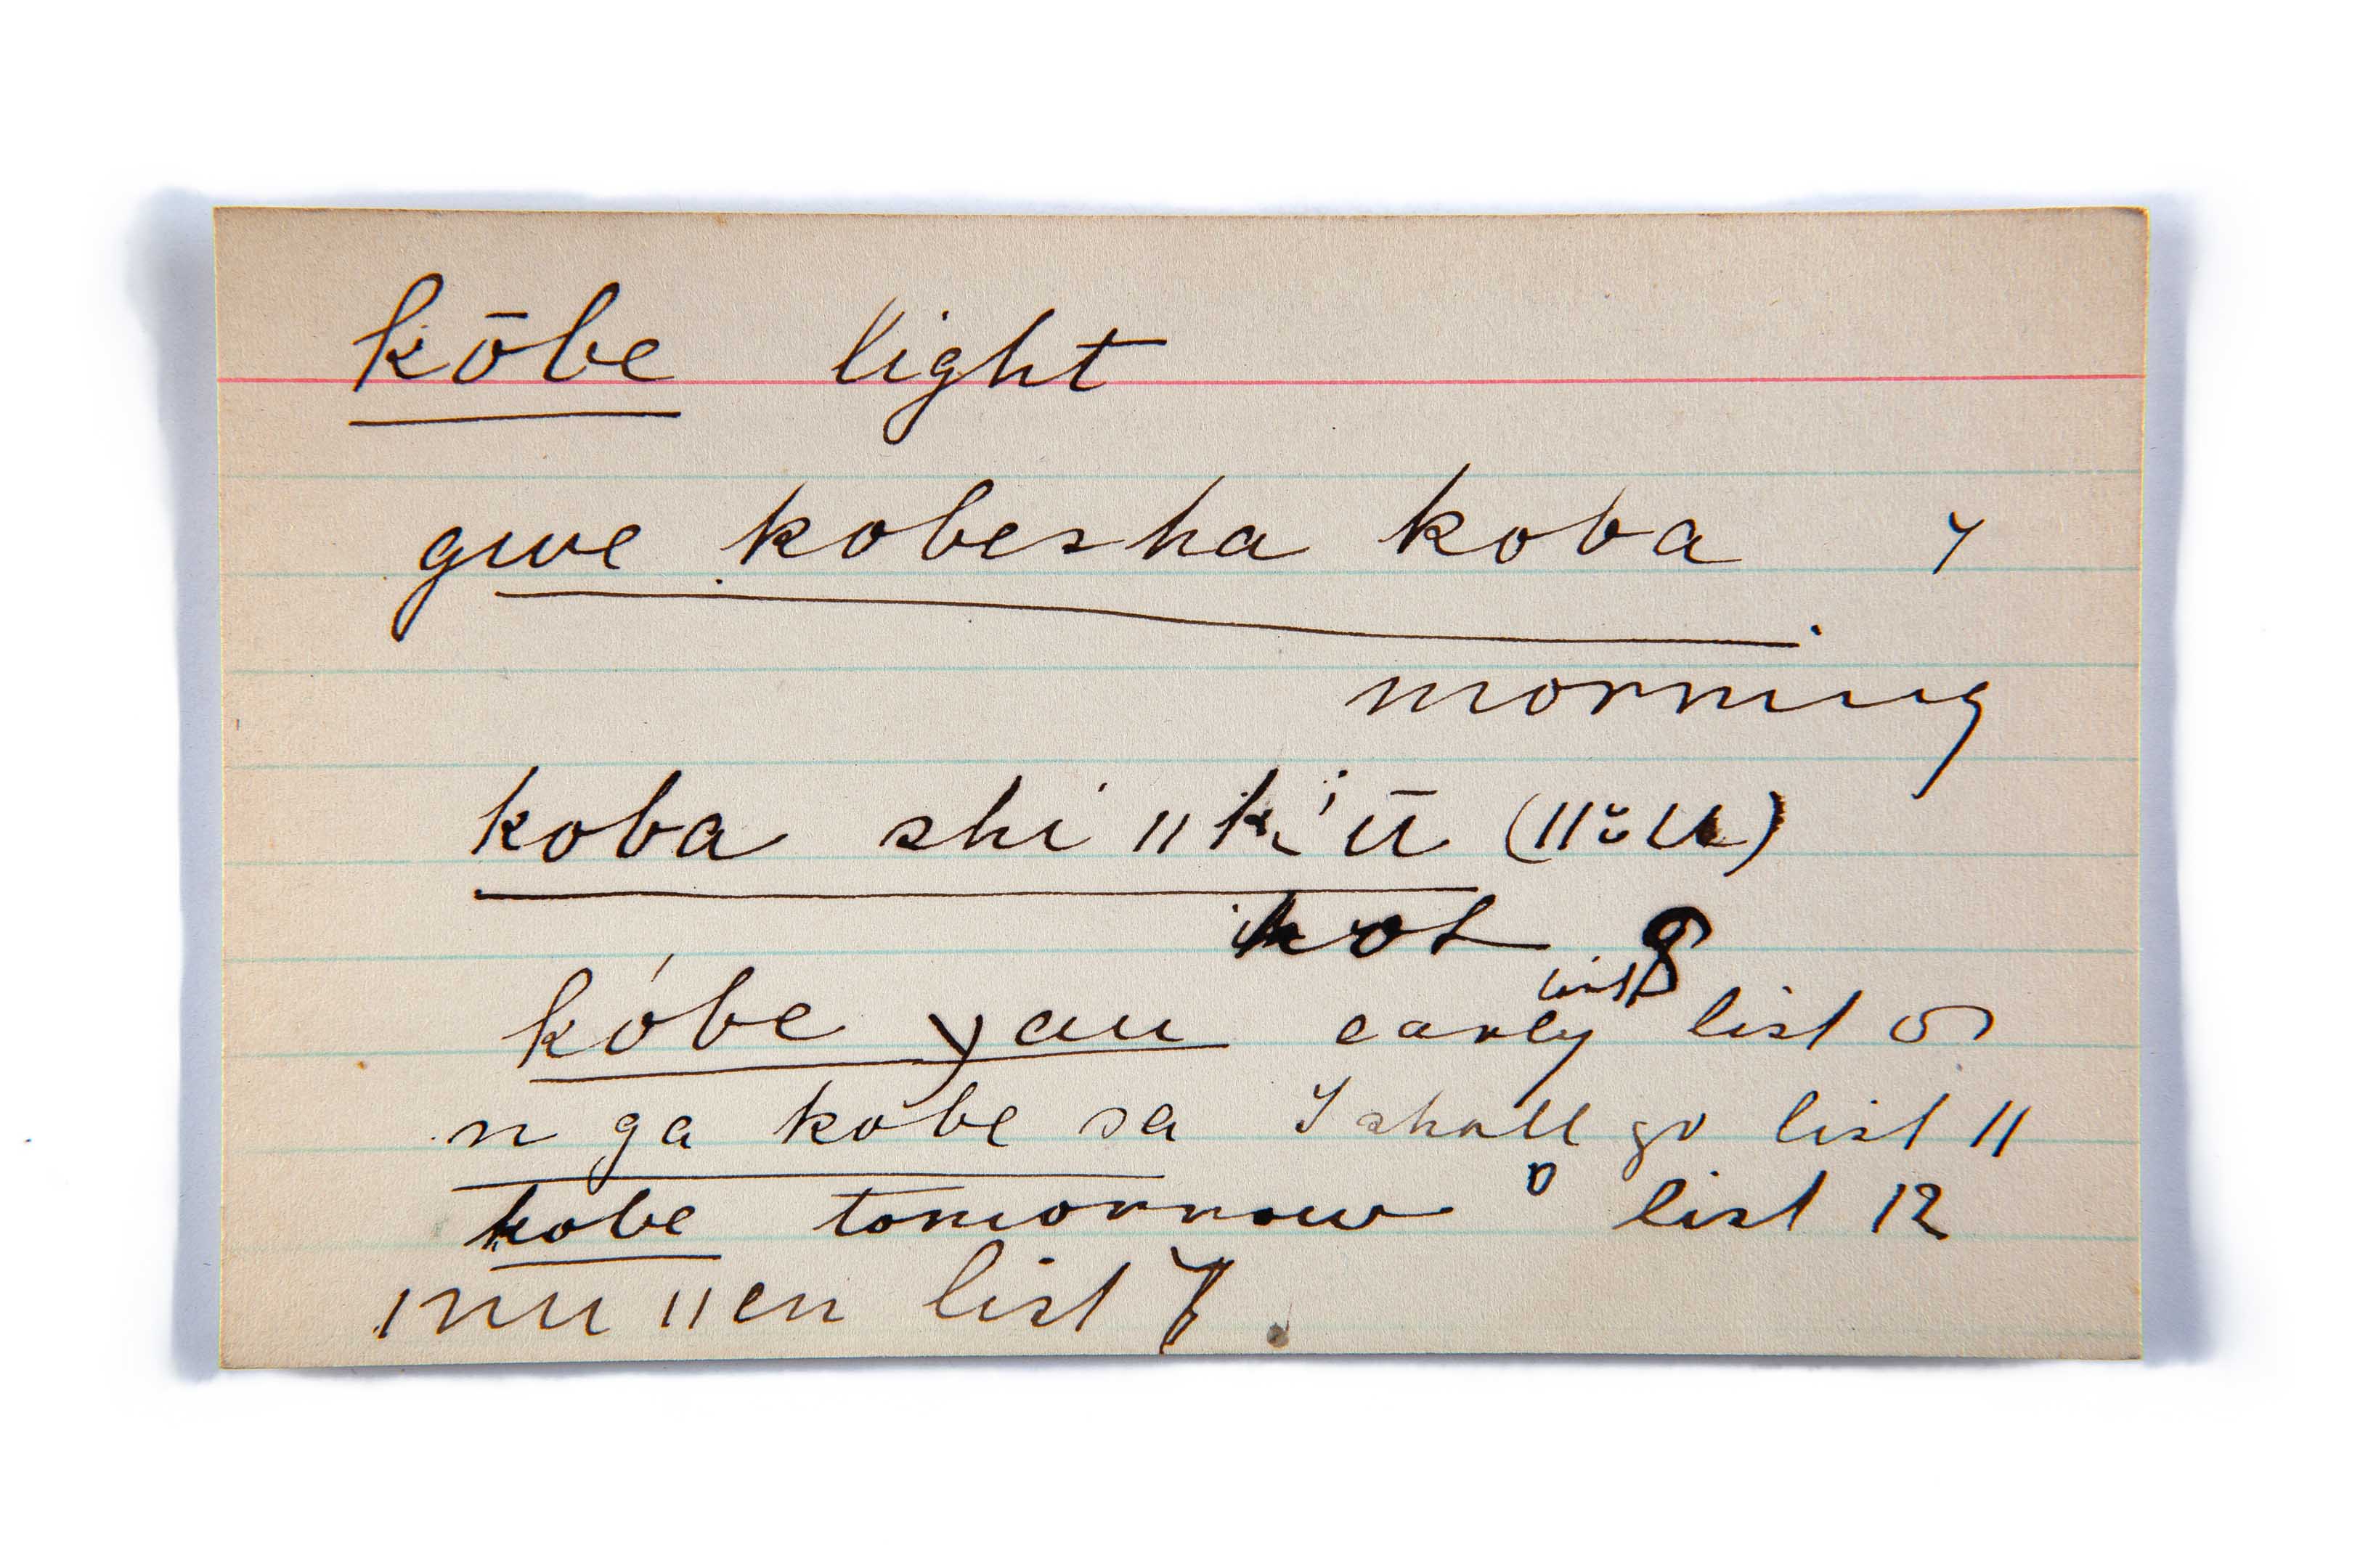 kōbe light
gwe kobesha koba 7
morning
koba shi ıı k'ū (ııăıı)
hot 8
list
kóbe yau early list 5
n ga kobe sa I shall go list 11
kobe tomorrow list 12
list 7